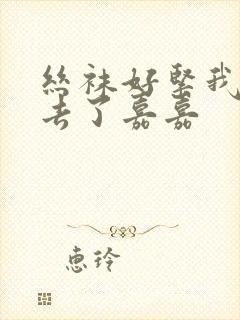 丝袜好緊我
丢了嘉嘉
惠玲